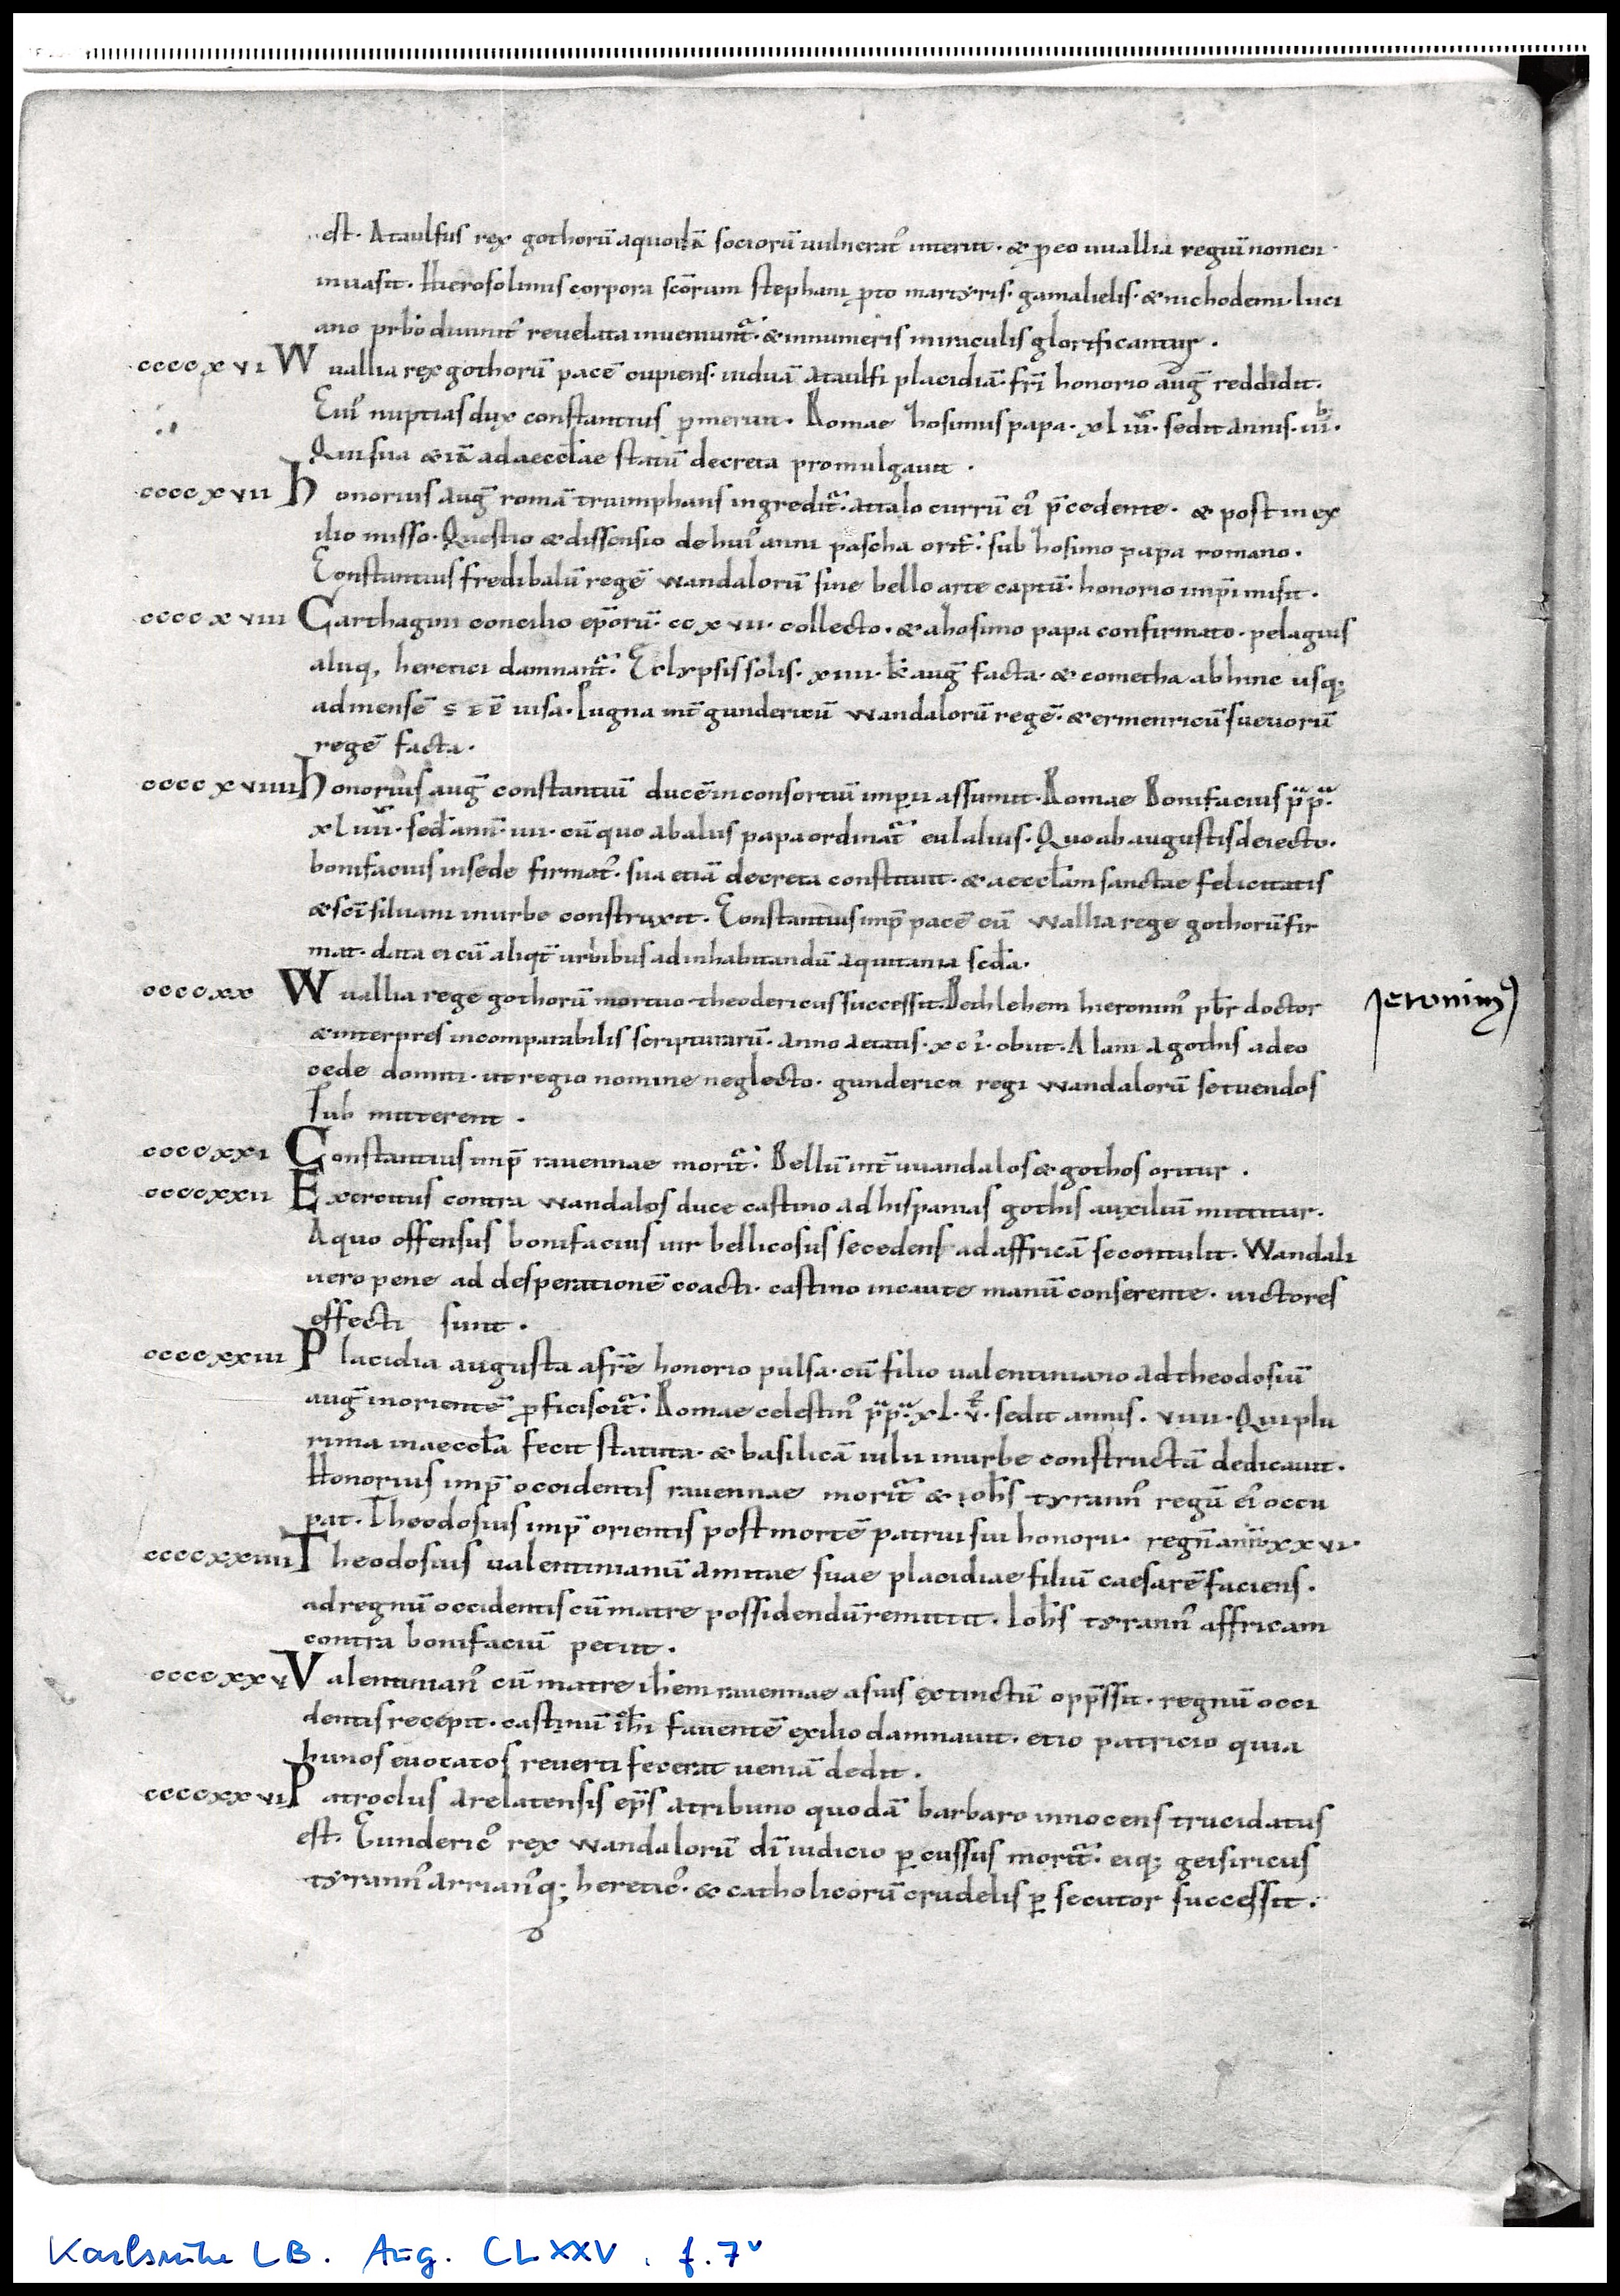 est. Ataulfus rex gothorū a quodā sociorū uulnerat᾿ interiit. & p eo uuallia regnū nomen
inuasit. Hierosolimis corpora scōrum stephani p̄to martyris. gamalielis. & nichodemi. luci
ano prb̄o diuinit᾿ reuelata inueniunt̄. & innumeris miraculis glorificantur.
ccccxvi W uallia rex gothorū pacē cupiens. uiduā ataulfi placidiā. fr̄i honorio aug̅ reddidit.
Cui᾿ nuptias dux constantius p̄meruit. Romae hosimus papa. xl iii. sedit annis. iii.
Qui sua & iā ad aeccl̄ae statū decreta promulgauit.
ccccxvii h onorius aug̅ romā triumphans ingredit̄. attalo currū ei᾿ p̄cedente. & post in ex
ilio misso. Questio & dissensio de hui᾿ anni pascha orit̄. sub hosimo papa romano.
Constantius fredibalū regē wandalorū sine bello arte captū. honorio imp̄i misit.
ccccxviii Carthagini concilio ep̄orū. cc x vii. collecto. & ab hosimo papa confirmato. pelagius
aliiq, heretici damnant̄. Eclypsis solis. xiiii. kł aug̅ facta. & cometha ab hinc usq;
ad mensē SEĒ uisa. Pugna int̄ gundericū wandalorū regē. & ermenricū sueuorū
regē facta.
ccccxviiii honorius aug̅ constantiū ducē in consortiū imperii assumit. Romae Bonifacius p̄p̄.
xl iiii. sed ann̄. iii. cū quo ab aliis papa ordinat̄ eulalius. Quo ab augustis deiecto.
bonifacius in sede firmat᾿. sua etiā decreta constituit. & aeccl̄am sanctae felicitatis
& sc̄i siluani in urbe construxit. Constantius imp̄ pacē cū wallia rege gothorū fir
mat. data ei cū aliqt̄ urbibus ad inhabitandū aquitania scd̄a.
ccccxx W uallia rege gothorū mortuo theodericus successit. Bethlehem hieronim᾿ pb̄r doctor
& interpres incomparabilis scripturarū. anno aetatis. xc i. obiit. Alani a gothis adeo
cede domiti. ut regio nomine neglecto. gunderico regi wandalorū se tuendos
sub mitterent.
Jeronim᾿
ccccxxi Constantius imp̄ rauennae morit̄. Bellū int̄ uuandalos & gothos oritur.
ccccxxii Exercitus contra wandalos duce castino ad hispanias gothis auxiliū mittitur.
A quo offensus bonifacius uir bellicosus secedens ad affricā se contulit. Wandali
uero pene ad desperationē coacti. castino incaute manū conserente. uictores
effecti sunt.
ccccxxiii P lacidia augusta a fr̄e honorio pulsa. cū filio ualentiniano ad theodosiū
aug̅ in orientē p̄ficiscit̄. Romae celestin᾿ p̄p̄. xl. v. sedit annis. viiii. Qui plu
rima in aeccl̄a fecit statuta. & basilicā iulii in urbe constructā dedicauit.
Honorius imp̄ occidentis rauennae morit̄ & ioh̄s tyrann᾿ regnū ei᾿ occu
pat. Theodosius imp̄ orientis post mortē patrui sui honorii. regn̄ annis xxvi.
ccccxxiiii T heodosius ualentinianū amitae suae placidiae filiū caesarē faciens.
ad regnū occidentis cū matre possidendū remittit. Ioh̄s tyrann᾿ affricam
contra bonifaciū petiit.
ccccxxv V alentinian᾿ cū matre ih̄em rauennae a suis extinctū opp̄ssit. regnū occi
dentis recepit. castinū ih̄i fauentē exilio damnauit. etio patricio quia
hunos euocatos reuerti fecerat ueniā dedit.
ccccxxvi P atroclus arelatensis ep̄s a tribuno quodā barbaro innocens trucidatus
est. Gunderic᾿ rex wandalorū dī iudicio p cussus morit̄. eiq; geisiricus
tyrann᾿ arrian᾿q; heretic᾿. & catholicorū crudelis p secutor successit.
Karlsruhe LB. Aug. CLXXV. f. 7v